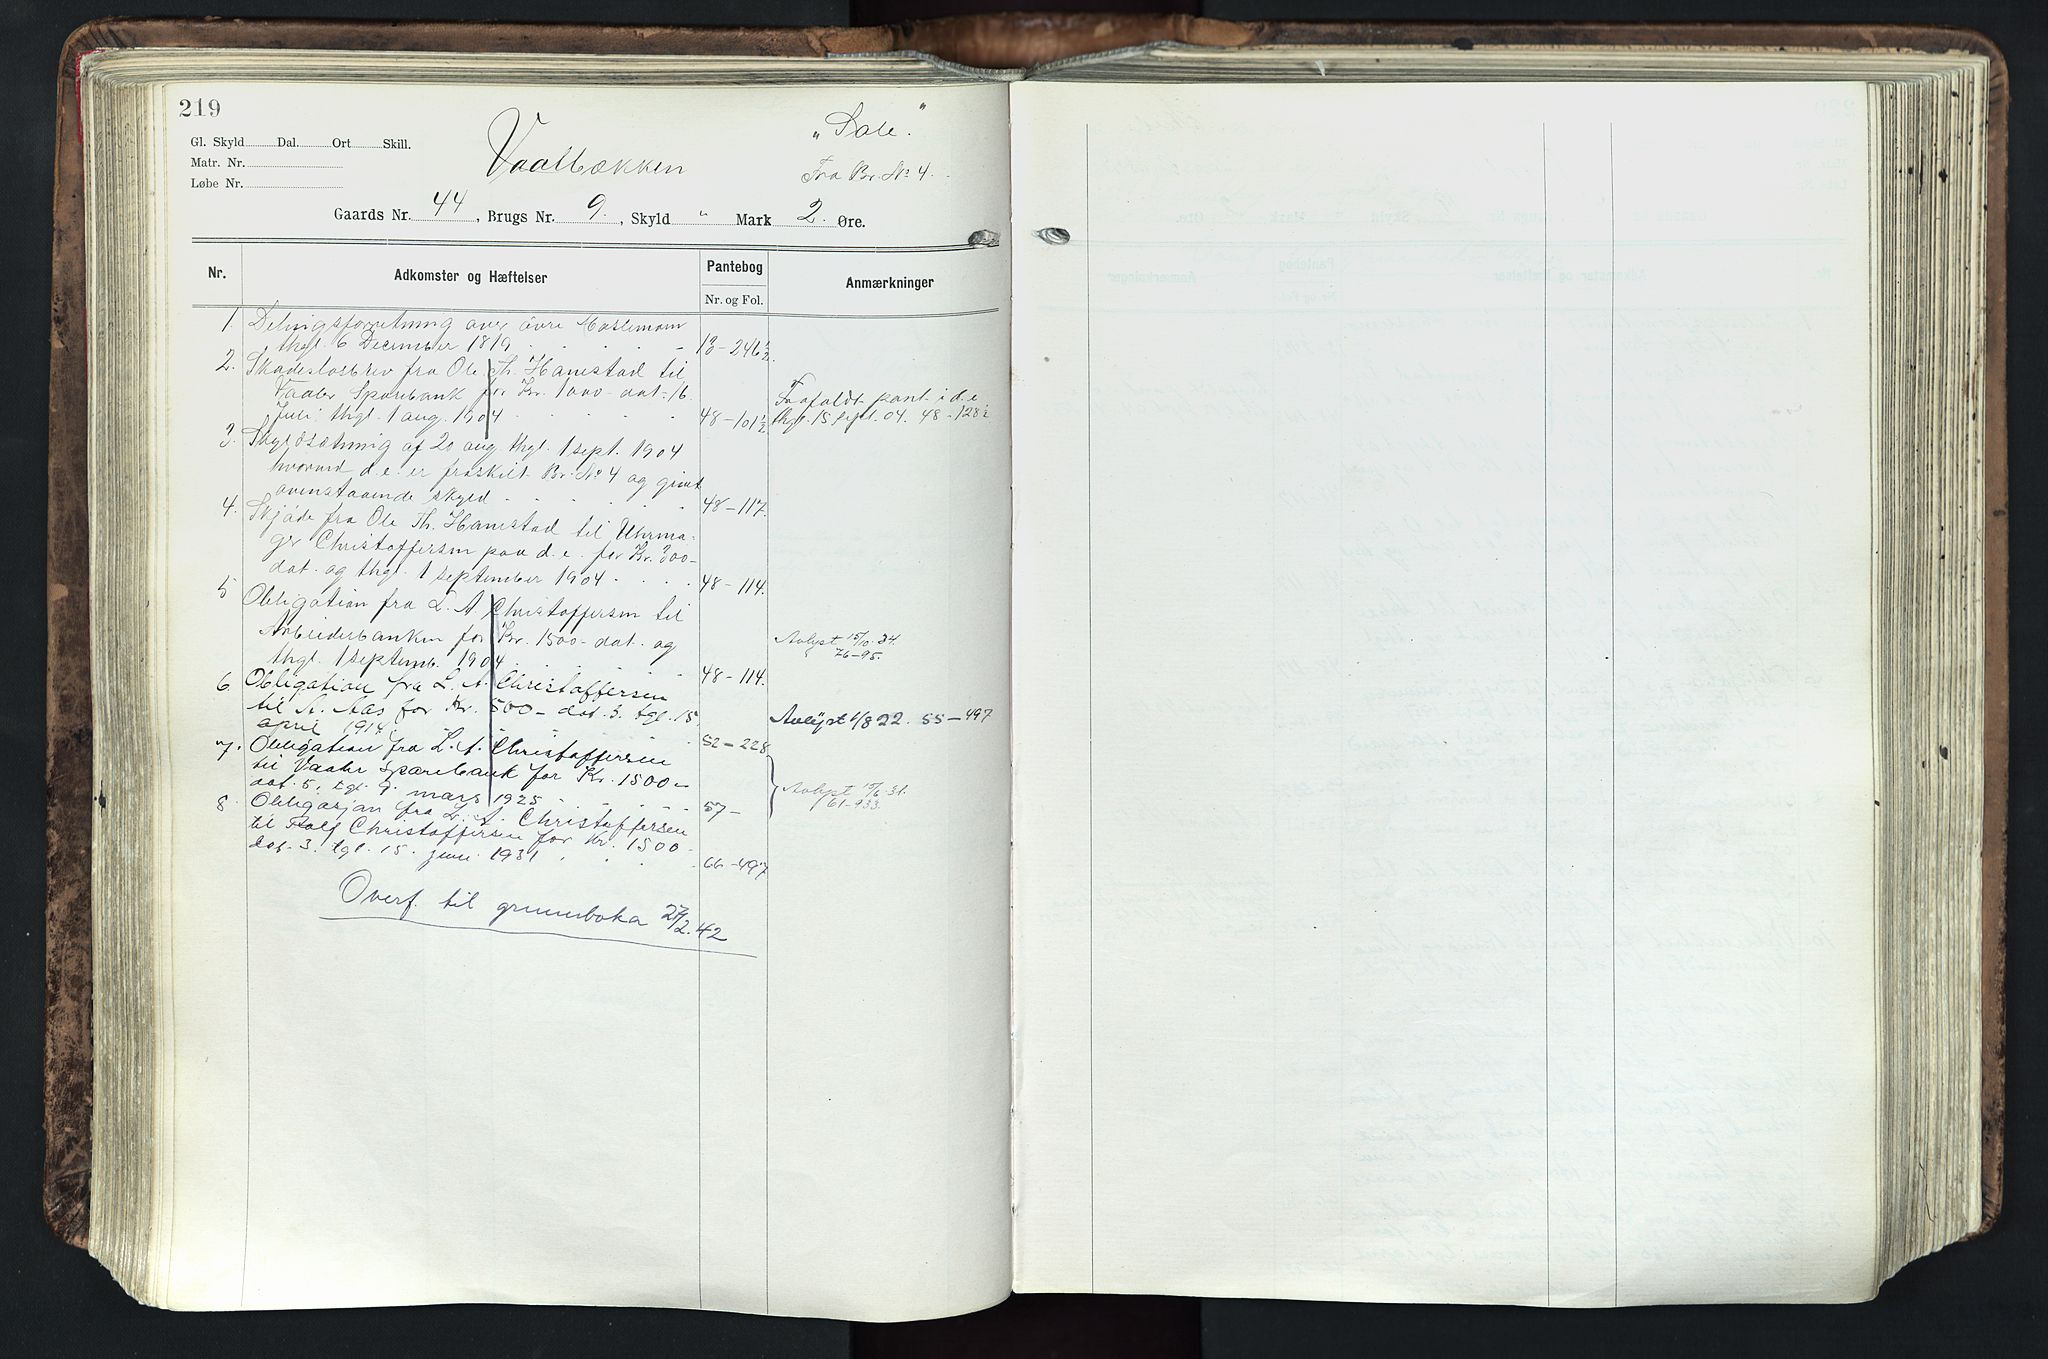 219
Gl. Skyld Dal. Ort Skill.
Matr. Nr.
Løbe Nr.
Vaalbækken
"Sole."
Fra Br. No 4.
Gaards Nr. 44, Brugs Nr. 9., Skyld " Mark 2. Øre.
Nr. Adkomster og Hæftelser Pantebog Anmærkninger
Nr. og Fol.
1. Delingsforretning over övre
thgl. 6 December 1819 13-246½
2. Skadesløsbrev fra Ole Th. Hanestad til
Vaaler Sparebank for Kr. 1000 dat. 16.
Juli thgl. 1 aug. 1904 48-101½
Frafaldt pant i d.e.
thgl. 15 sept. 04. 48-128½
3. Skyldsætning af 20 aug. thgl. 1 sept. 1904
hvorved d.e. er fraskilt Br. No 4 og givet
ovenstaaende skyld 48-117.
4. Skjøde fra Ole Th. Hanestad til Uhrma-
ger Christoffersen paa d.e. for Kr. 300-
dat. og thgl. 1 september 1904 48-114.
5 Obligation fra L. A. Christoffersen til
Arbeiderbanken for Kr. 1500- dat. og
thgl. 1 septemb. 1904 48-114.
Avlyst 15/10.24.
76-95.
6. Obligation fra L. A. Christoffersen
til A. Aas for Kr. 500- dat. 3. tgl. 15
april 1914. 52-228
Avlyst 1/8 22. 55-497
7. Obligation fra L. A. Christoffersen
til Vaaler Sparebank for Kr. 1500-
dat. 5. tgl. 9. mars 1925 57-
Avlyst 15/6.31.
61-933.
8. Obligasjon fra L. A. Christoffersen
til Rolf Christoffersen for Kr. 1500-
dat. 3. tgl. 15. juni 1931 66-497
Overf. til grunnboka 27/2.42